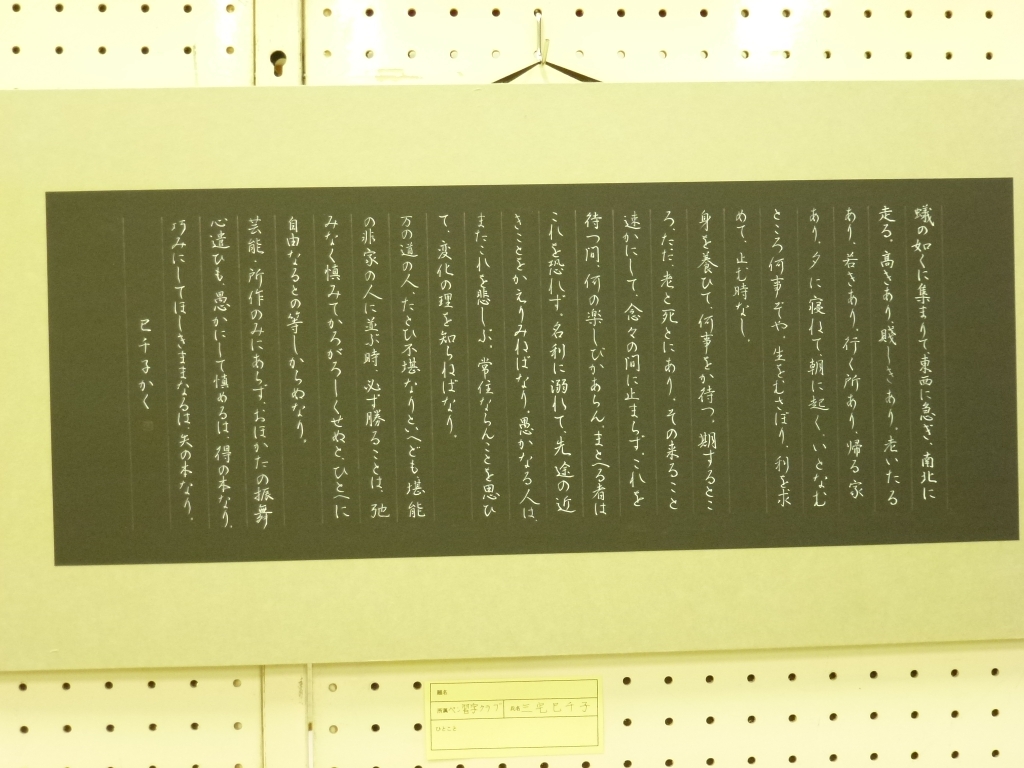 蟻の如くに集まりて東西に急ぎ、南北に
走る。高きあり、賤しきあり。老いたる
あり、若きあり。行く所あり、帰る家
あり。夕に寝ねて、朝に起く。いとなむ
ところ何事ぞや。生をむさぼり、利を求
めて、止む時なし。
身を養ひて、何事をか待つ。期するとこ
ろ、ただ、老と死とにあり。その来ること
速かにして、念々の間に止まらず。これを
待つ間、何の楽しびかあらん。まどへる者は
これを恐れず。名利に溺れて、先途の近
きことをかえりみねばなり。愚かなる人は、
また、これを悲しぶ。常住ならんことを思ひ
て、変化の理を知らねばなり。
万の道の人、たとひ不堪なりといへども、堪能
の非家の人に並ぶ時、必ず勝ることは、弛
みなく慎みてかろがろしくせぬと、ひとへに
自由なるとの等しからぬなり。
芸能、所作のみにあらず、おほかたの振舞
心遣ひも、愚かにして慎めるは、得の本なり。
巧みにしてほしきままなるは、失の本なり。
巳千子かく
題名
所属 ペン習字クラブ 氏名 三宅巳千子
ひとこと